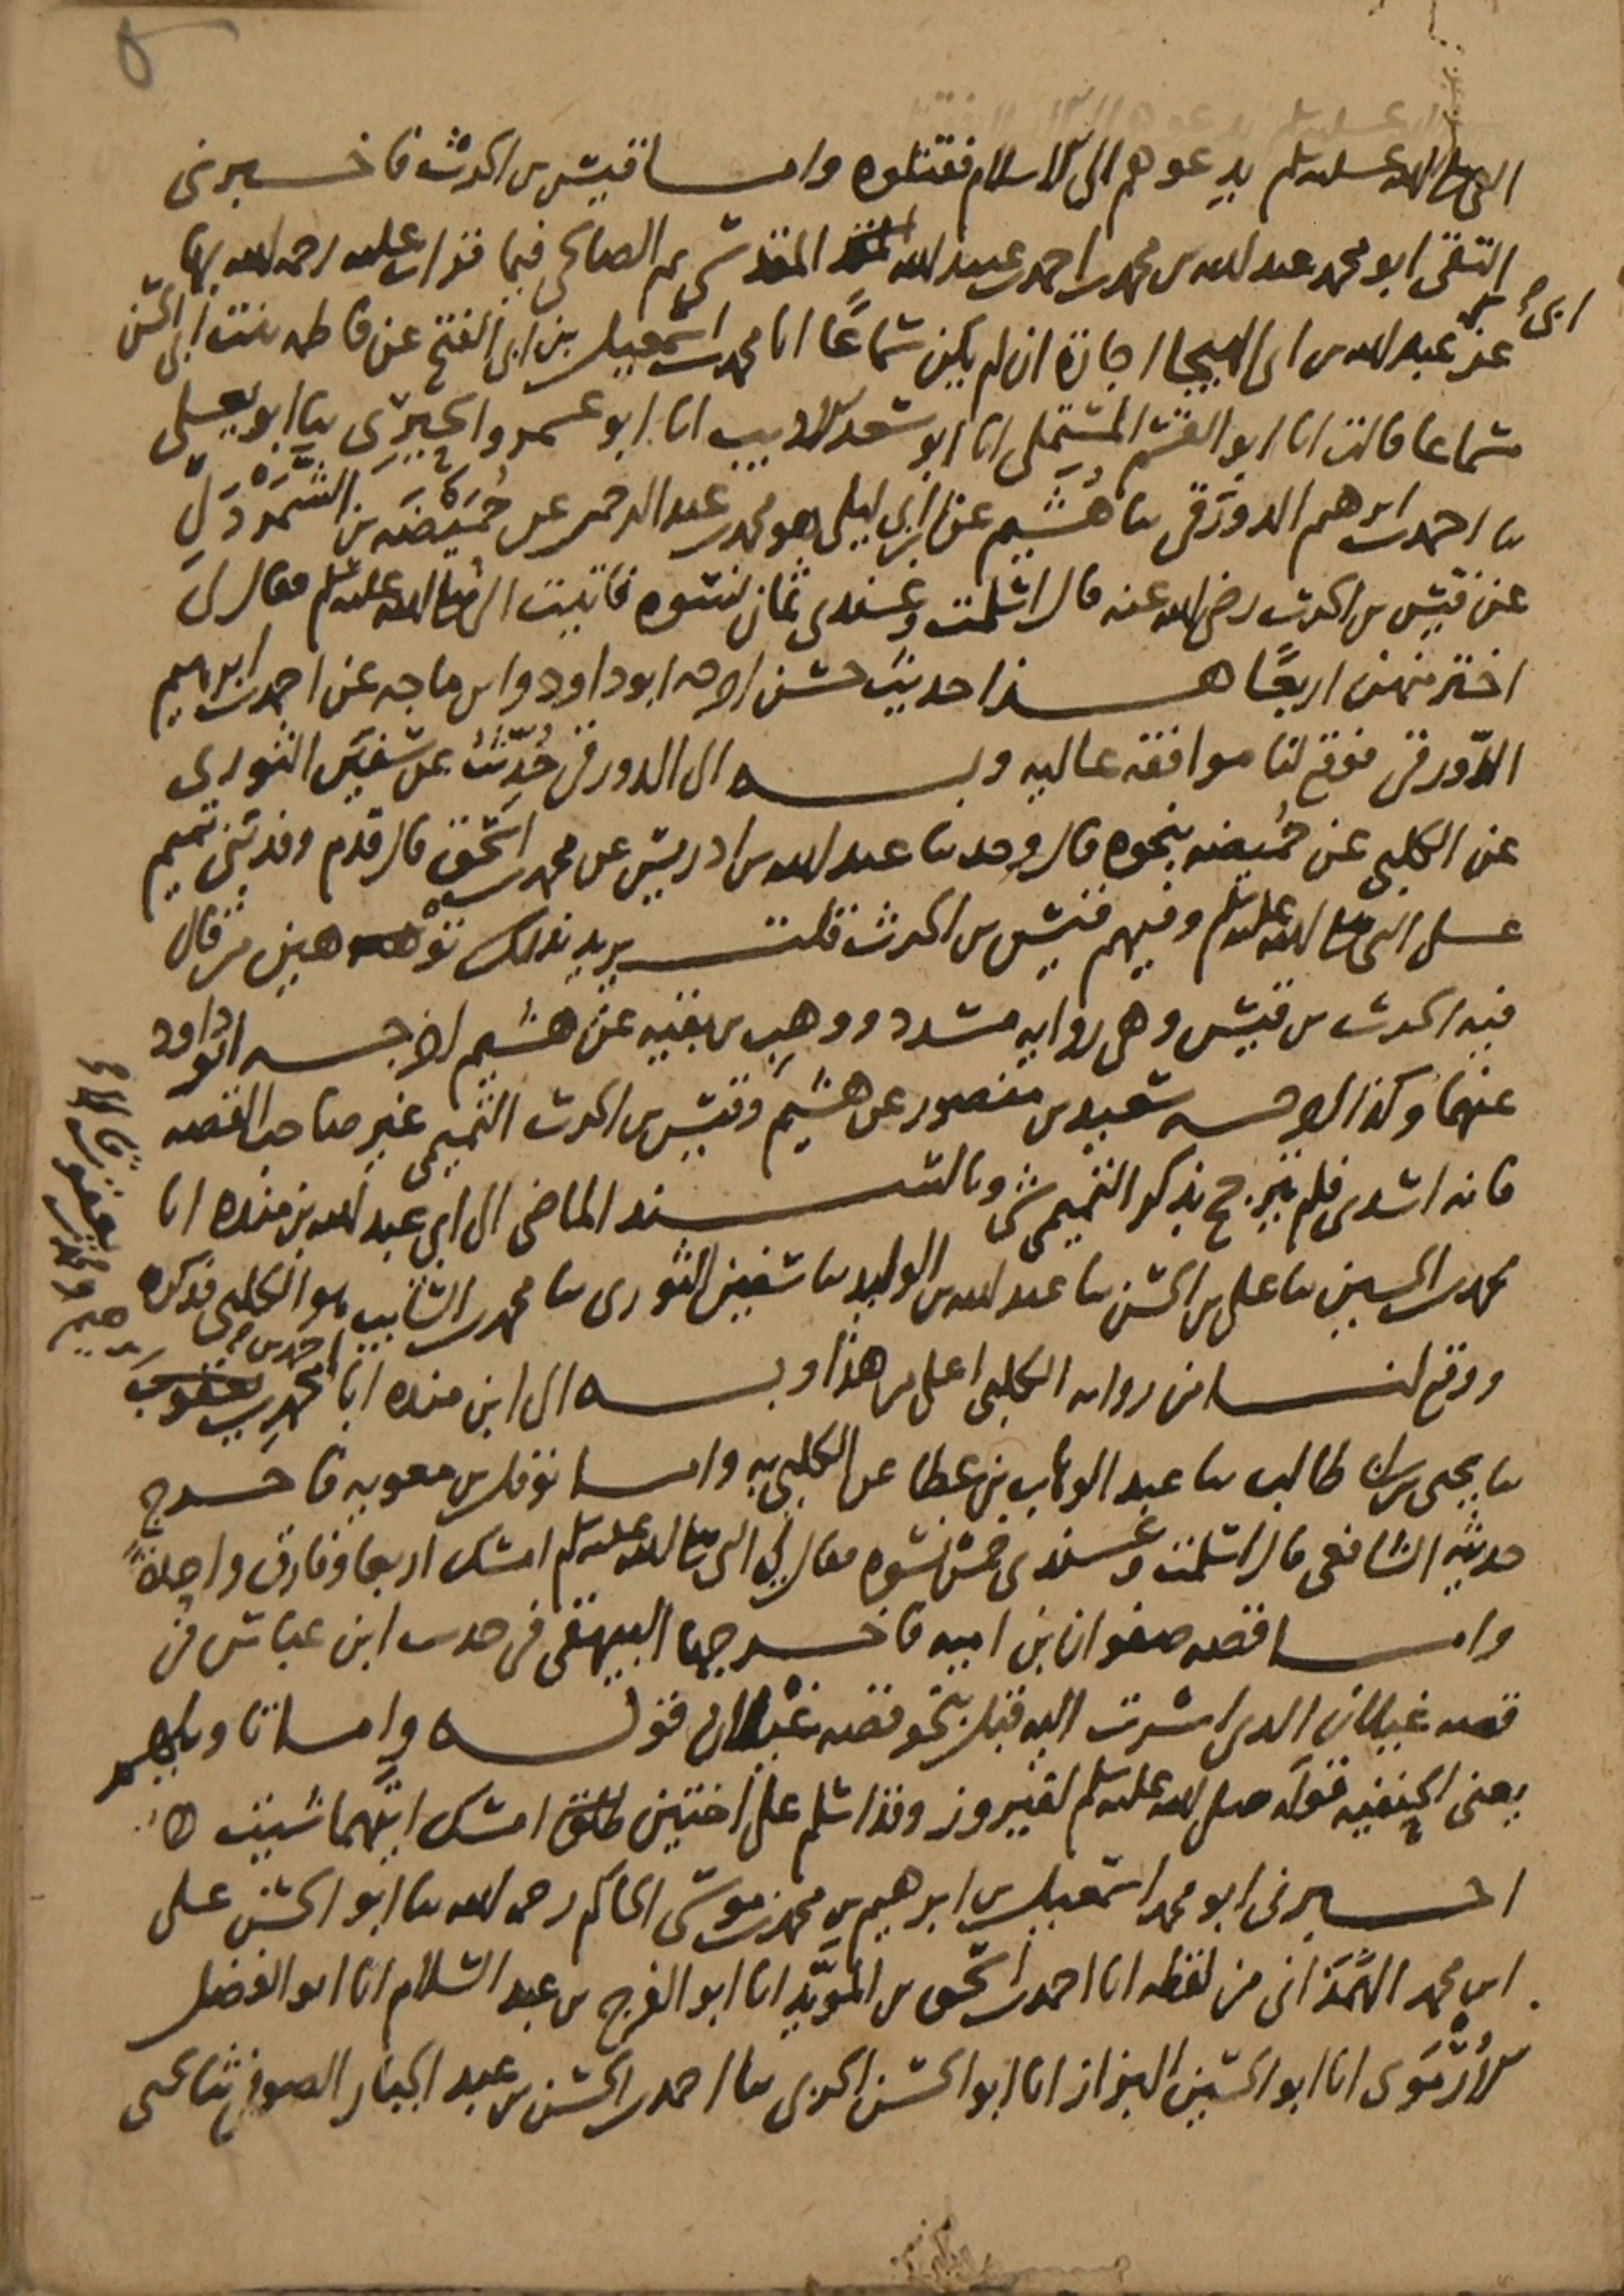 النبي صلى الله عليه وسلم يدعوهم الى الاسلام فقتلوه واما قيس بن الحرث فاخبرني
التقي ابو محمد عبد الله بن محمد بن احمد بن عبيد الله المقدسي ثم الصالحي فيما قرات عليه رحمه الله بها
عن عبد الله بن ابي الهيجا اجازة ان لم يكن سماعًا انا محمد بن اسمعيل بن ابي الفتح عن فاطمه بنت ابي الحسن
سماعا قالت انا ابو القسم المستملي انا ابو سعد الاديب انا ابو عمرو الحيري ثنا ابو يعلى
ثنا احمد بن ابرهيم الدورقي ثنا هُشيم عن ابن ابي ليلى هو محمد بن عبد الرحمن عن حُمَيْضَه بن الشَّمَرْدَلِ
عن قيس بن الحرث رضي الله عنه قال اسلمت وعندي ثمان نسوه فاتيت النبي صلى الله عليه وسلم فقال لي
اختر منهن اربعًا هذا حديث حسن اخرجه ابو داود وابن ماجه عن احمد بن ابرهيم
الدّورقي فوقع لنا موافقه عاليه وبه الى الدورقي حُدِّثْتُ عن سفين الثوري
عن الكلبي عن حُميضه بنحوه قال وحدثنا عبد الله بن ادريس عن محمد بن اسحق قال قدم وفد بني تميم
على النبي صلى الله عليه وسلم وفيهم قيس بن الحرث قلت يريد بذلك توهين من قال
فيه الحرث بن قيس وهي روايه مسدد ووهب بن بقيه عن هشيم اخرجه ابو داود
عنهما وكذا اخرجه سعيد بن منصور عن هشيم وقيس بن الحرث التميمي غير صاحب القصه
فانه اسدي فلم يترجح بذكر التميمي شي وبالسند الماضي الى ابي عبد الله بن منده انا
محمد بن الحسين ثنا علي بن الحسن ثنا عبد الله بن الوليد ثنا سفين الثوري ثنا محمد بن السايب هو الكلبي فذكره
ووقع لنا من روايه الكلبي اعلى من هذا وبه الى ابن منده انا احمد بن محمد بن يعقوب
ثنا يحيى بن ابي طالب ثنا عبد الوهاب بن عطا عن الكلبي به واما نوفل بن معويه فاخرج
حديثه الشافعي قال اسلمت وعندي خمس نسوه فقال لي النبي صلى الله عليه وسلم امسك اربعا وفارق واحدةً
واما قصه صفوان بن اميه فاخرجها البيهقي في حديث ابن عباس في
قصه غيلان الذي اشرت اليه قبل بنحو قصه غيلان قوله واما تاويلهم
يعني الحنفيه قوله صلى الله عليه وسلم لفيروز وقد اسلم على اختين امسك ايتهما شيت
اخبرني ابو محمد اسمعيل بن ابرهيم بن محمد بن موسى الحاكم رحمه الله ثنا ابو الحسن علي
ابن محمد الهَمَذاني من لفظه انا احمد بن اسحق بن المؤيَّد انا ابو الفرج بن عبد السلام انا ابو الفضل
الارْمَوي انا ابو الحسين البزاز انا ابو الحسن الحربي ثنا احمد بن الحسن بن عبد الجبار الصوفي ثنا يحيى